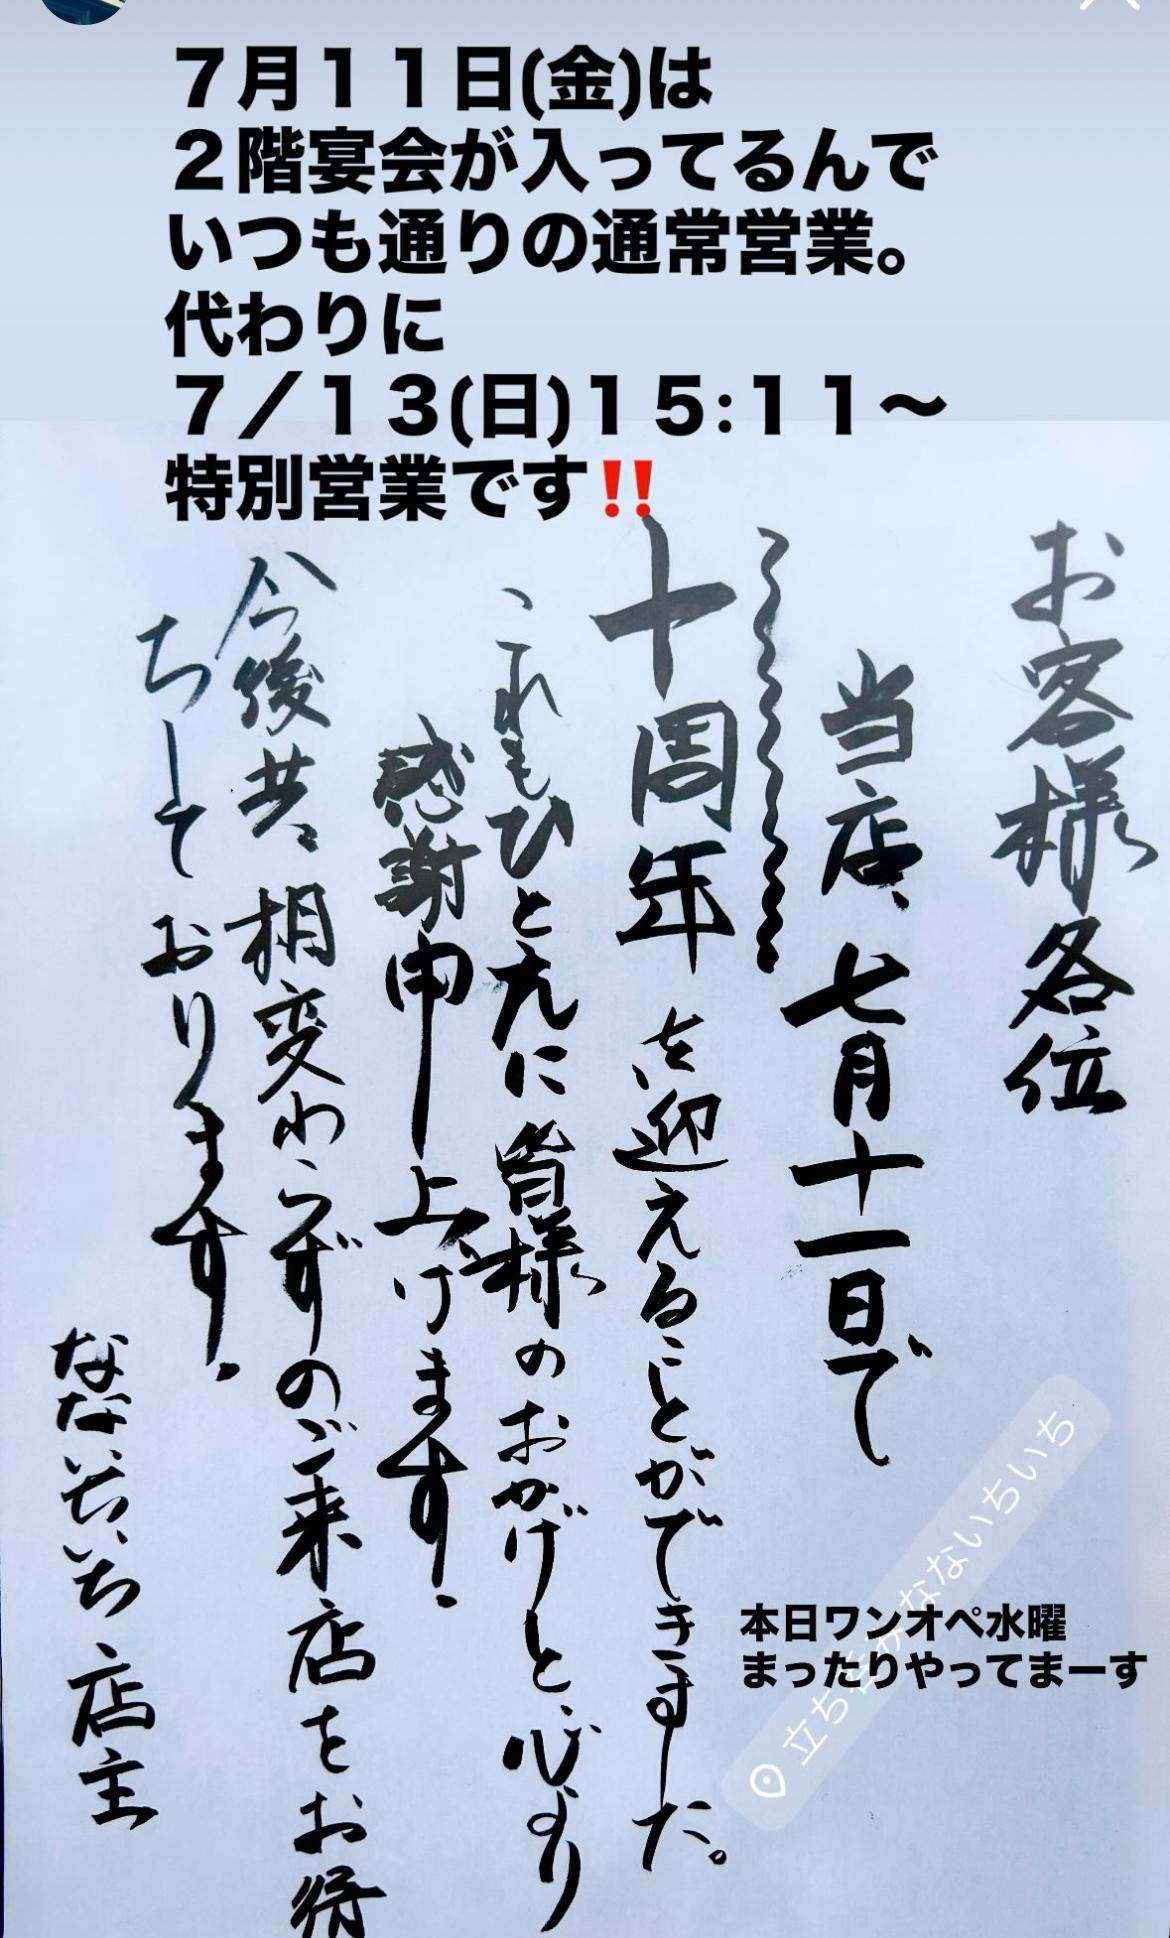 ７月１１日(金)は
２階宴会が入ってるんで
いつも通りの通常営業。
代わりに
７／１３(日)１５:１１〜
特別営業です‼️
お客様各位
当店、七月十一日で
十周年を迎えることができました。
これもひとえに皆様のおかげと、心より
感謝申し上げます。
今後共、相変わらずのご来店をお待
ちしております。
なないちいち 店主
本日ワンオペ水曜
まったりやってまーす
立ち呑みなないちいち